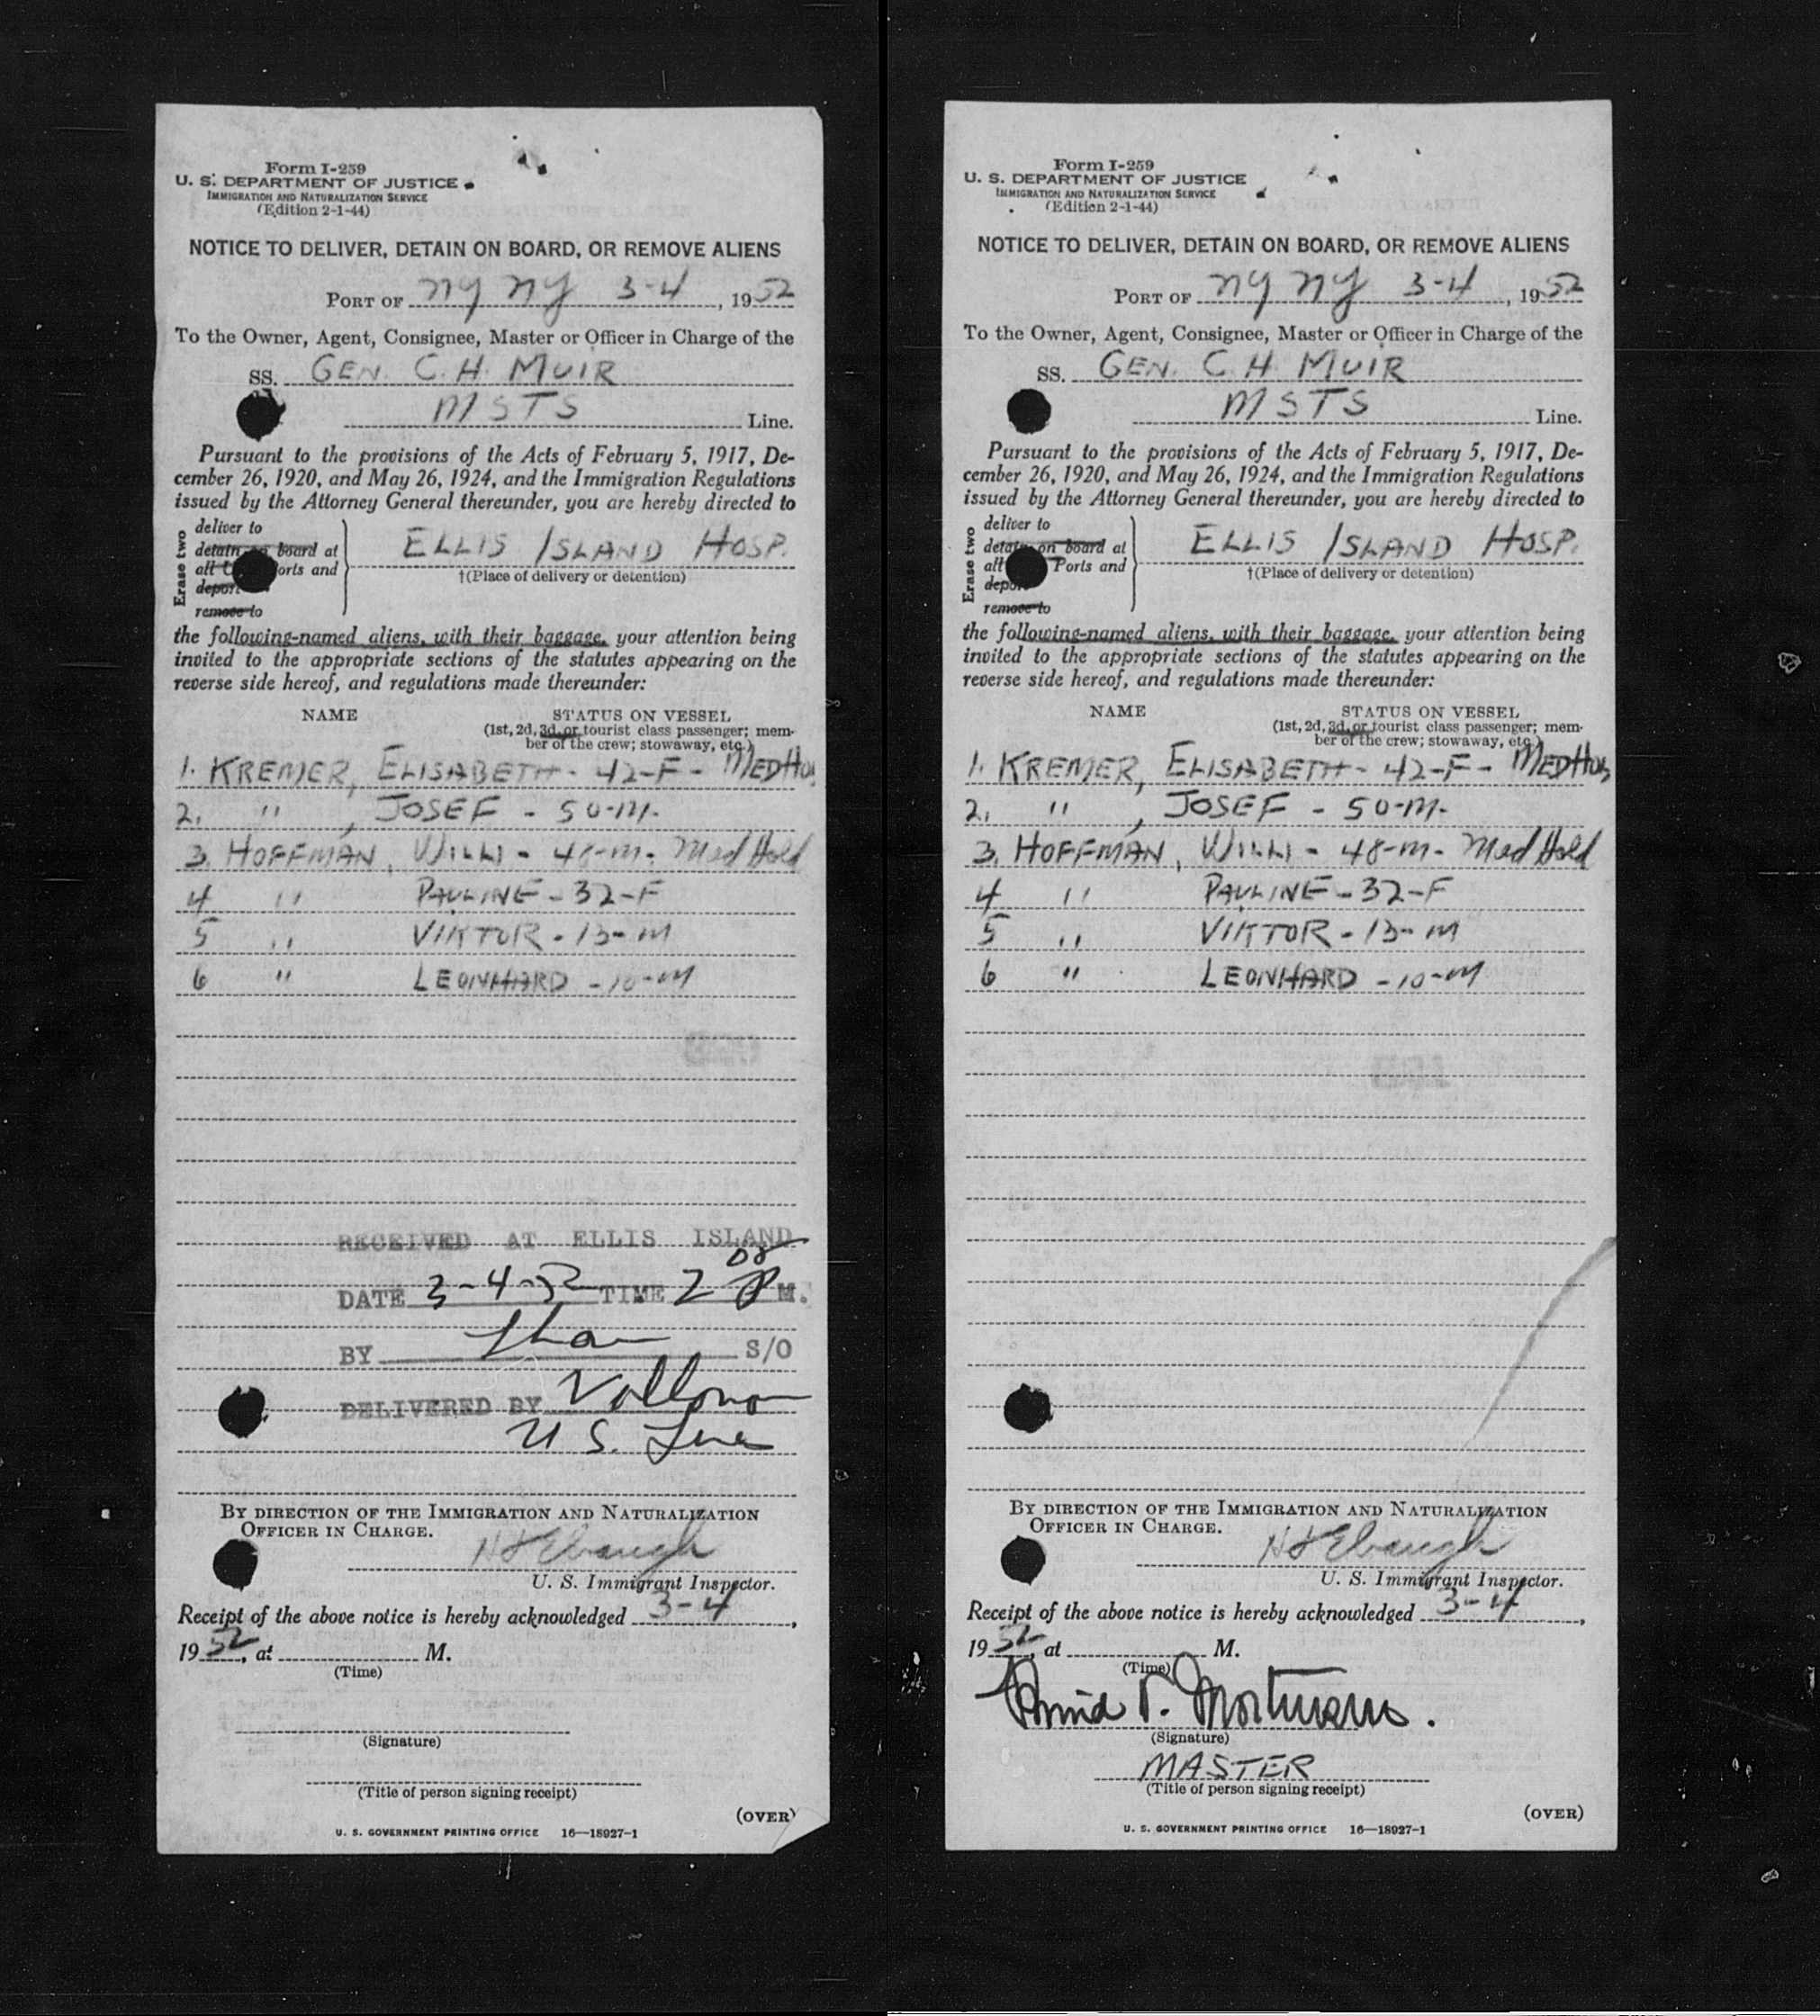 Form I-259
U. S. DEPARTMENT OF JUSTICE
IMMIGRATION AND NATURALIZATION SERVICE
(Edition 2-1-44)
NOTICE TO DELIVER, DETAIN ON BOARD, OR REMOVE ALIENS
PORT OF NY NY 3-4, 1952
To the Owner, Agent, Consignee, Master or Officer in Charge of the
SS. GEN. C. H. MUIR
MSTS Line.
Pursuant to the provisions of the Acts of February 5, 1917, De-
cember 26, 1920, and May 26, 1924, and the Immigration Regulations
issued by the Attorney General thereunder, you are hereby directed to
Erase two
deliver to
detain on board at
all Ports and
deport
remove to
ELLIS ISLAND HOSP.
†(Place of delivery or detention)
the following-named aliens, with their baggage, your attention being
invited to the appropriate sections of the statutes appearing on the
reverse side hereof, and regulations made thereunder:
NAME STATUS ON VESSEL
(1st, 2d, 3d, or tourist class passenger; mem-
ber of the crew; stowaway, etc.)
1. KREMER, ELISABETH - 42-F - MED
2. " , JOSEF - 50-M.
3. HOFFMAN, WILLI - 48-M. Med Hold
4 " PAULINE - 32-F
5 " VIKTOR - 13-M
6 " LEONHARD - 10-M
RECEIVED AT ELLIS ISLAND
DATE 3-4-52 TIME 2 08 P M.
BY S/O
DELIVERED BY
U S. Line
BY DIRECTION OF THE IMMIGRATION AND NATURALIZATION
OFFICER IN CHARGE.
Ebaugh
U. S. Immigrant Inspector.
Receipt of the above notice is hereby acknowledged 3-4,
1952, at M.
(Time)
(Signature)
(Title of person signing receipt)
(OVER)
U. S. GOVERNMENT PRINTING OFFICE 16—18927-1
Form I-259
U. S. DEPARTMENT OF JUSTICE
IMMIGRATION AND NATURALIZATION SERVICE
(Edition 2-1-44)
NOTICE TO DELIVER, DETAIN ON BOARD, OR REMOVE ALIENS
PORT OF NY NY 3-4, 1952
To the Owner, Agent, Consignee, Master or Officer in Charge of the
SS. GEN. C H MUIR
MSTS Line.
Pursuant to the provisions of the Acts of February 5, 1917, De-
cember 26, 1920, and May 26, 1924, and the Immigration Regulations
issued by the Attorney General thereunder, you are hereby directed to
Erase two
deliver to
detain on board at
all Ports and
deport
remove to
ELLIS ISLAND HOSP.
†(Place of delivery or detention)
the following-named aliens, with their baggage, your attention being
invited to the appropriate sections of the statutes appearing on the
reverse side hereof, and regulations made thereunder:
NAME STATUS ON VESSEL
(1st, 2d, 3d, or tourist class passenger; mem-
ber of the crew; stowaway, etc.)
1. KREMER, ELISABETH - 42-F - MED
2. " , JOSEF - 50-M.
3. HOFFMAN, WILLI - 48-M- Med Hold
4 " PAULINE - 32-F
5 " VIKTOR - 13-M
6 " LEONHARD - 10-M
BY DIRECTION OF THE IMMIGRATION AND NATURALIZATION
OFFICER IN CHARGE.
Ebaugh
U. S. Immigrant Inspector.
Receipt of the above notice is hereby acknowledged 3-4,
1952, at M.
(Time)
(Signature)
MASTER
(Title of person signing receipt)
(OVER)
U. S. GOVERNMENT PRINTING OFFICE 16—18927-1